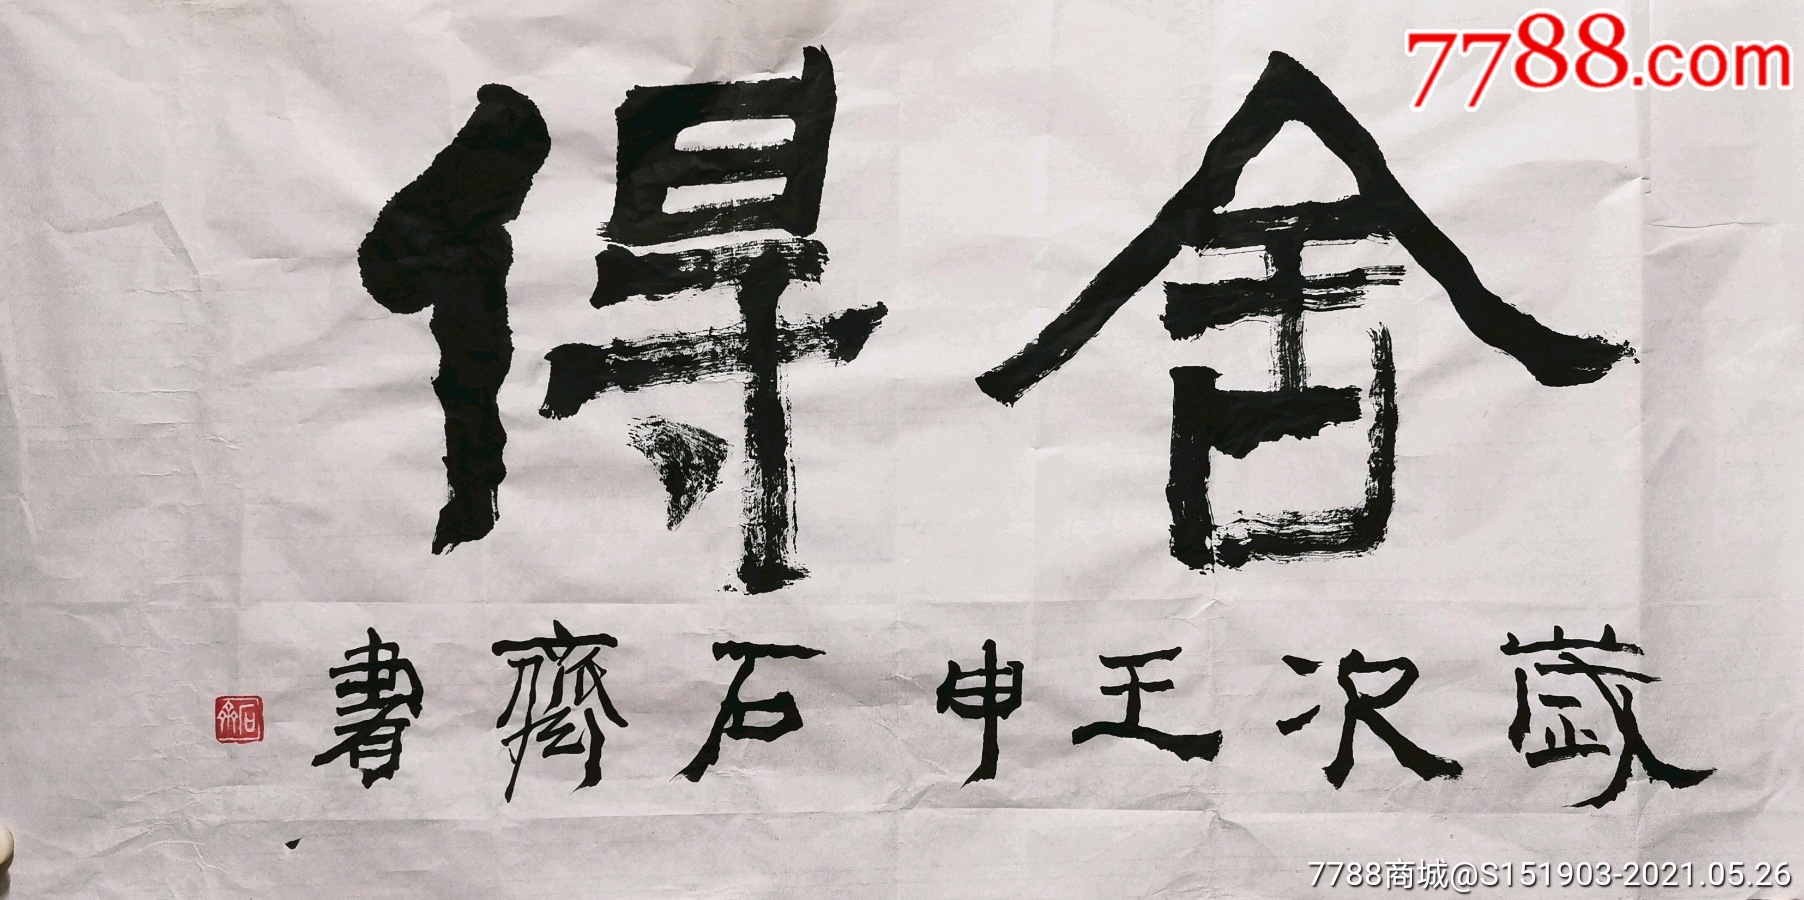 7788.com
舍得
歲次壬申石齋書
7788商城@S151903-2021.05.26